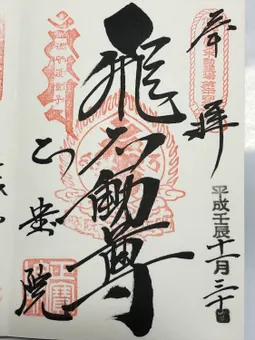 奉拝
平成壬辰十一月三十日
飛不動尊
正宝院